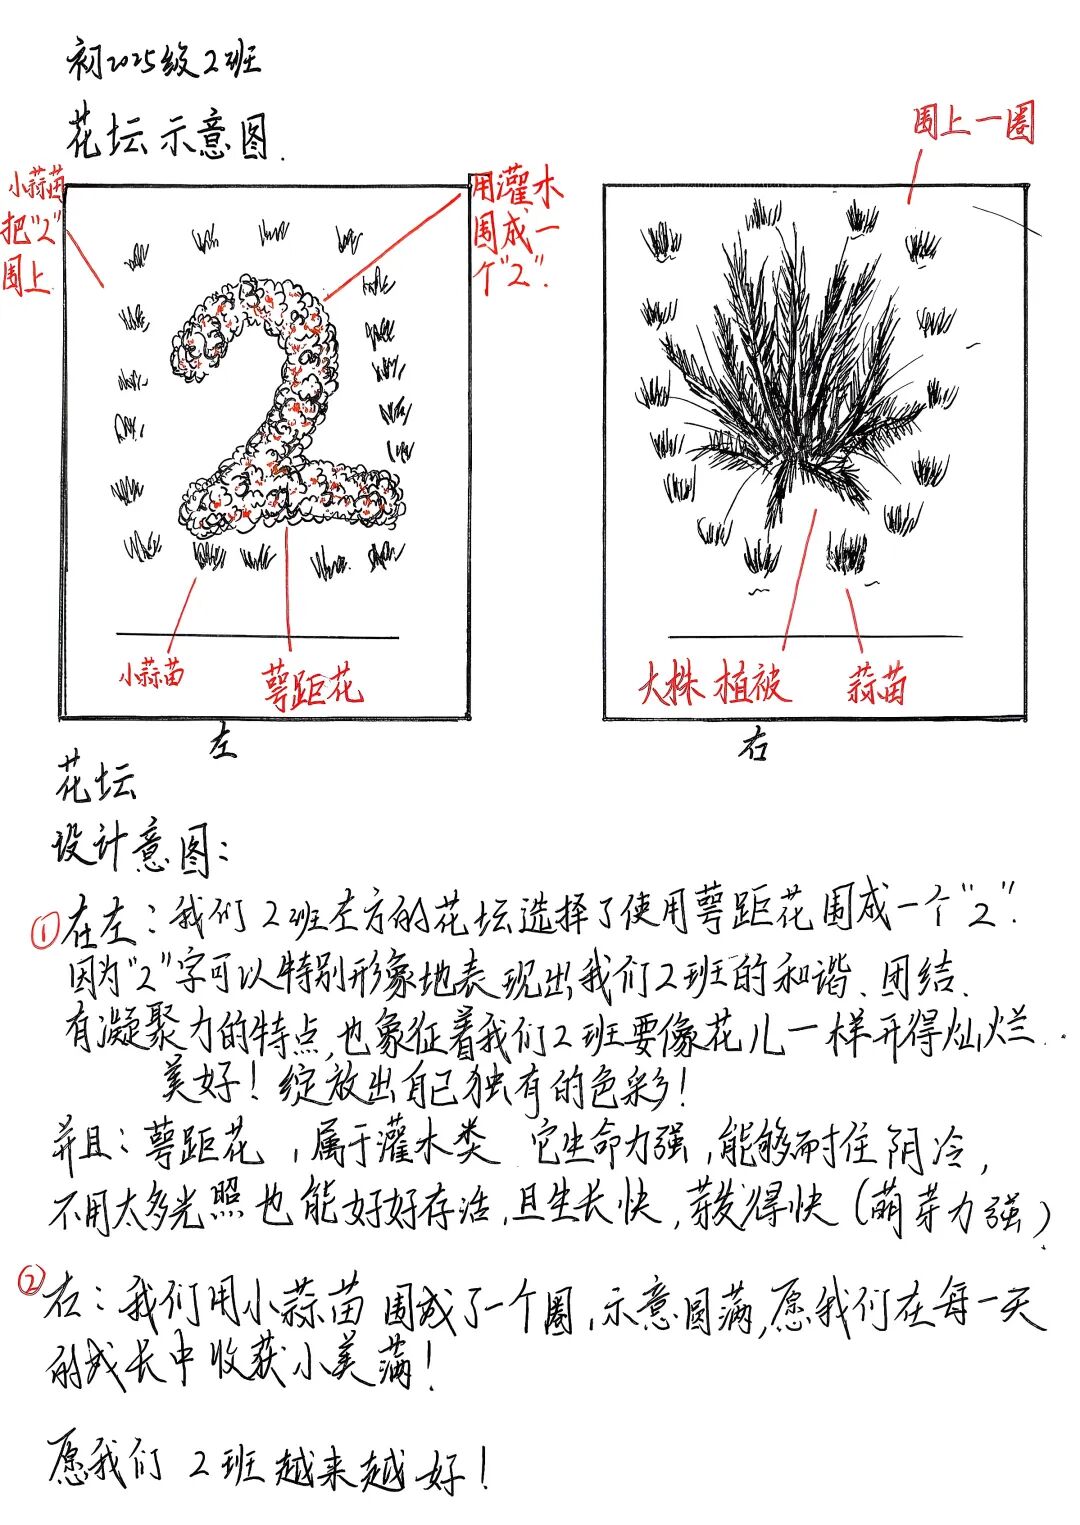 初2025级2班
花坛示意图.
小蒜苗
把"2"
围上
用灌木
围成一
个"2".
小蒜苗
萼距花
左
围上一圈
大株植被
蒜苗
右
花坛
设计意图:
①在左:我们2班左方的花坛选择了使用萼距花围成一个"2".
因为"2"字可以特别形象地表现出我们2班的和谐、团结、
有凝聚力的特点,也象征着我们2班要像花儿一样开得灿烂..
美好!绽放出自己独有的色彩!
并且:萼距花,属于灌木类 它生命力强,能够耐住阴冷,
不用太多光照也能好好存活,且生长快,芽发得快(萌芽力强).
②右:我们用小蒜苗围成了一个圈,示意圆满,愿我们在每一天
的成长中收获小美满!
愿我们2班越来越好!